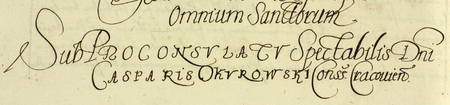 Omnium Sanctorum
Sub PROCONSVLATV Spectabilis Dni
CASPARIS OKVROWSKI Cons: Cracovien: